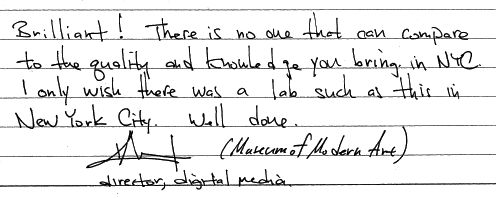 Brilliant! There is no one that can compare
to the quality and knowledge you bring in NYC.
I only wish there was a lab such as this in
New York City. Well done.
(Museum of Modern Art)
director, digital media.